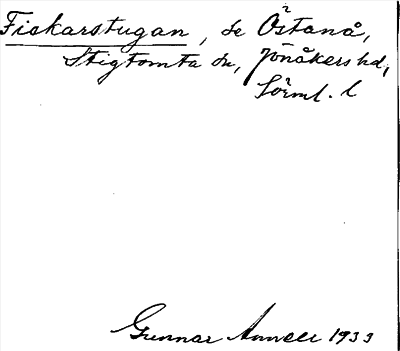 Fiskarstugan, se Östanå,
Stigtomta sn, Jönåkers hd,
Sörml. l
Gunnar Amneli 1933